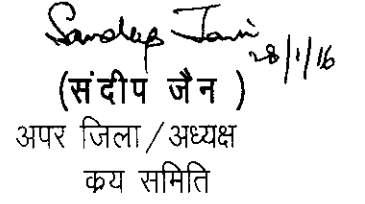 Sandeep Jain
28/1/16
(संदीप जैन )
अपर जिला/अध्यक्ष
क्रय समिति